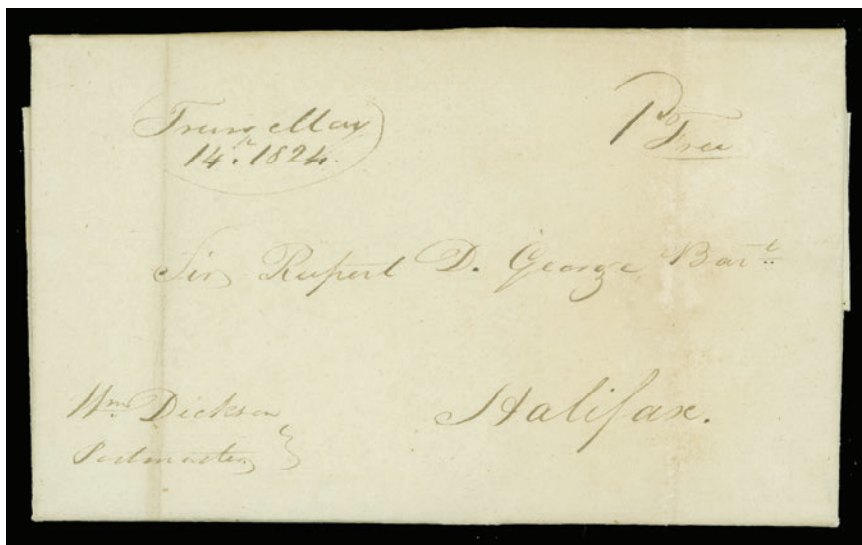 Truro May
14th. 1824.
Pd Free
Sir Rupert D. George, Bart.
Halifax.
Wm. Dickson
Postmaster